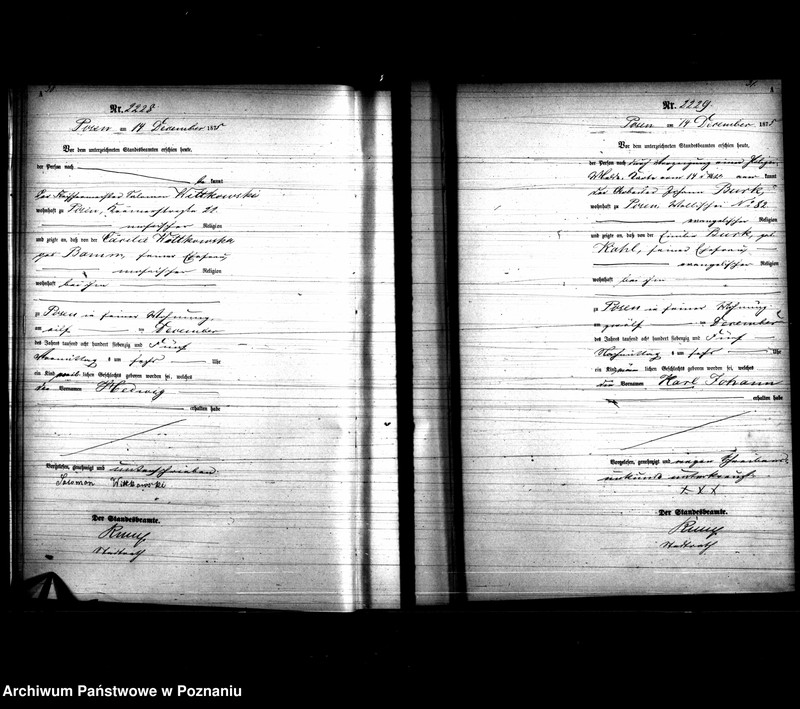 Nr. 2228
Posen am 14 December 1875
Vor dem unterzeichneten Standesbeamten erschien heute,
der Person nach
be kannt
Der Salomon Wittkowski
wohnhaft zu Posen, 22
mosaischer Religion
und zeigte an, daß von der Cäcilie Wittkowska
geb Bamm, seiner Ehefrau
mosaischer Religion
wohnhaft bei ihm
zu Posen in seiner Wohnung
am elf ten December
des Jahres tausend acht hundert siebenzig und Fünf
mittag s um sechs Uhr
ein Kind weib lichen Geschlechts geboren worden sei, welches
den Vornamen Hedwig
erhalten habe
Vorgelesen, genehmigt und unterschrieben
Salomon Wittkowski
Der Standesbeamte.
Stadtrath
Nr. 2229
Posen am 14 December 1875
Vor dem unterzeichneten Standesbeamten erschien heute,
der Person nach durch einer
vom 14 kannt
Der Arbeiter Johann Burk,
wohnhaft zu Posen Wallischei No 82
evangelischer Religion
und zeigte an, daß von der Emilie Burk, geb
Kahl, seiner Ehefrau
evangelischer Religion
wohnhaft bei ihm
zu Posen in seiner Wohnung
am zwölf ten December
des Jahres tausend acht hundert siebenzig und Fünf
Nachmittag s um sechs Uhr
ein Kind männ lichen Geschlechts geboren worden sei, welches
den Vornamen Karl Johann
erhalten habe
Vorgelesen, genehmigt und wegen Schreibens-
unkunde unterkreuzt
+ + +
Der Standesbeamte.
Stadtrath
Archiwum Państwowe w Poznaniu